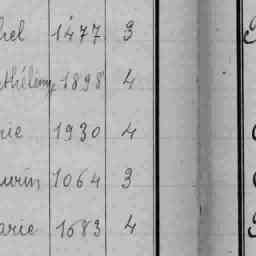 hel 1477 3
thélémy 1898 4
rie 1930 4
urin 1064 3
arie 1683 4